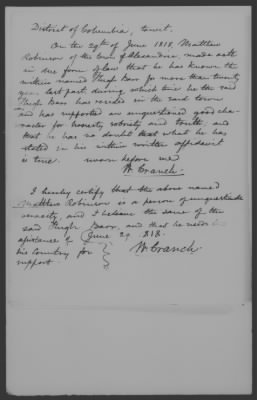 District of Columbia, towit.
On the 29th of June 1818, Matthew
Robinson of the town of Alexandria, made oath
in due form of law that he has known the
within named Hugh Barr for more than twenty
years last past, during which time he the said
Hugh Barr has resided in the said town
and has supported an unquestioned good cha-
racter for honesty, sobriety and truth, and
that he has no doubt that what he has
stated in his within written affidavit
is true. sworn before me
W. Cranch.
I hereby certify that the above named
Matthew Robinson is a person of unquestionable
veracity, and I believe the same of the
said Hugh Barr, and that he needs
assistance of June 29. 1818.
his Country for
support. W. Cranch.